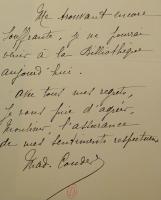 Me trouvant encore
souffrante, je ne pourrai
venir à la Bibliothèque
aujourd'hui.
Avec tous mes regrets,
je vous prie d'agréer,
Monsieur, l'assurance
de mes sentiments respectueux
Mad.